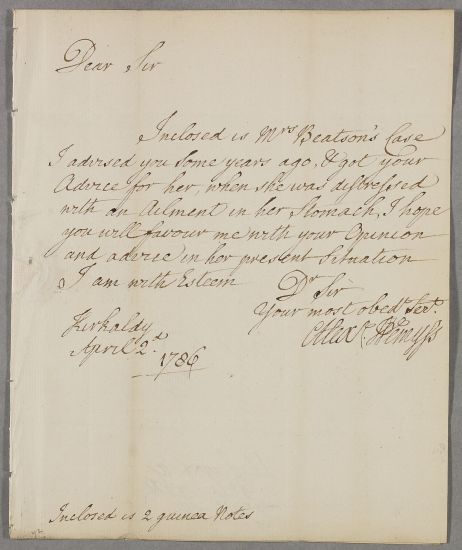 Dear Sir
Inclosed is Mrs Beatson's Case
I advised you some years ago, & got your
Advice for her, when she was distressed
with an Ailment in her Stomach, I hope
you will favour me with your Opinion
and advice in her present Situation
I am with Esteem Dr Sir
Your most obedt. Sert.
Alexr. Wemyss
Kirkaldy
April 2d.
1786
Inclosed is 2 guinea Notes